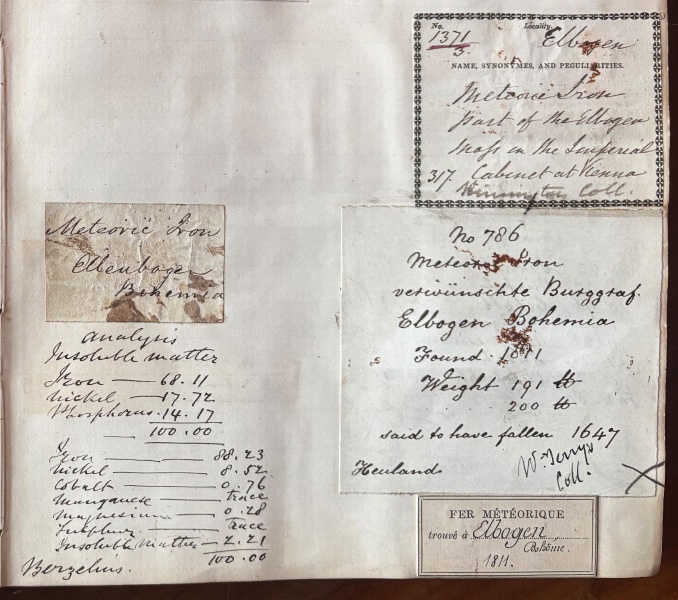 Meteoric Iron
Ellenbogen
Bohemia
Analysis
Insoluble matter
Iron — 68.11
Nickel — 17.72
Phosphorus. 14.17
100.00
Iron — 88.23
Nickel — 8.52
Cobalt — 0.76
Manganese — trace
Magnesium — 0.28
Sulphur — Trace
Insoluble Matter — 2.21
100.00
Berzelius.
No.
Locality.
1371
3.
Elbogen
NAME, SYNONYMES, AND PECULIARITIES.
Meteoric Iron
part of the Elbogen
Mass in the Imperial
317. Cabinet at Vienna
Coll.
No 786
Meteoric Iron
verwünschte Burggraf.
Elbogen Bohemia
Found 1811
Weight 191 ℔
200 ℔
said to have fallen 1647
Heuland
Coll.
FER MÉTÉORIQUE
trouvé à Elbogen,
Bohême.
1811.